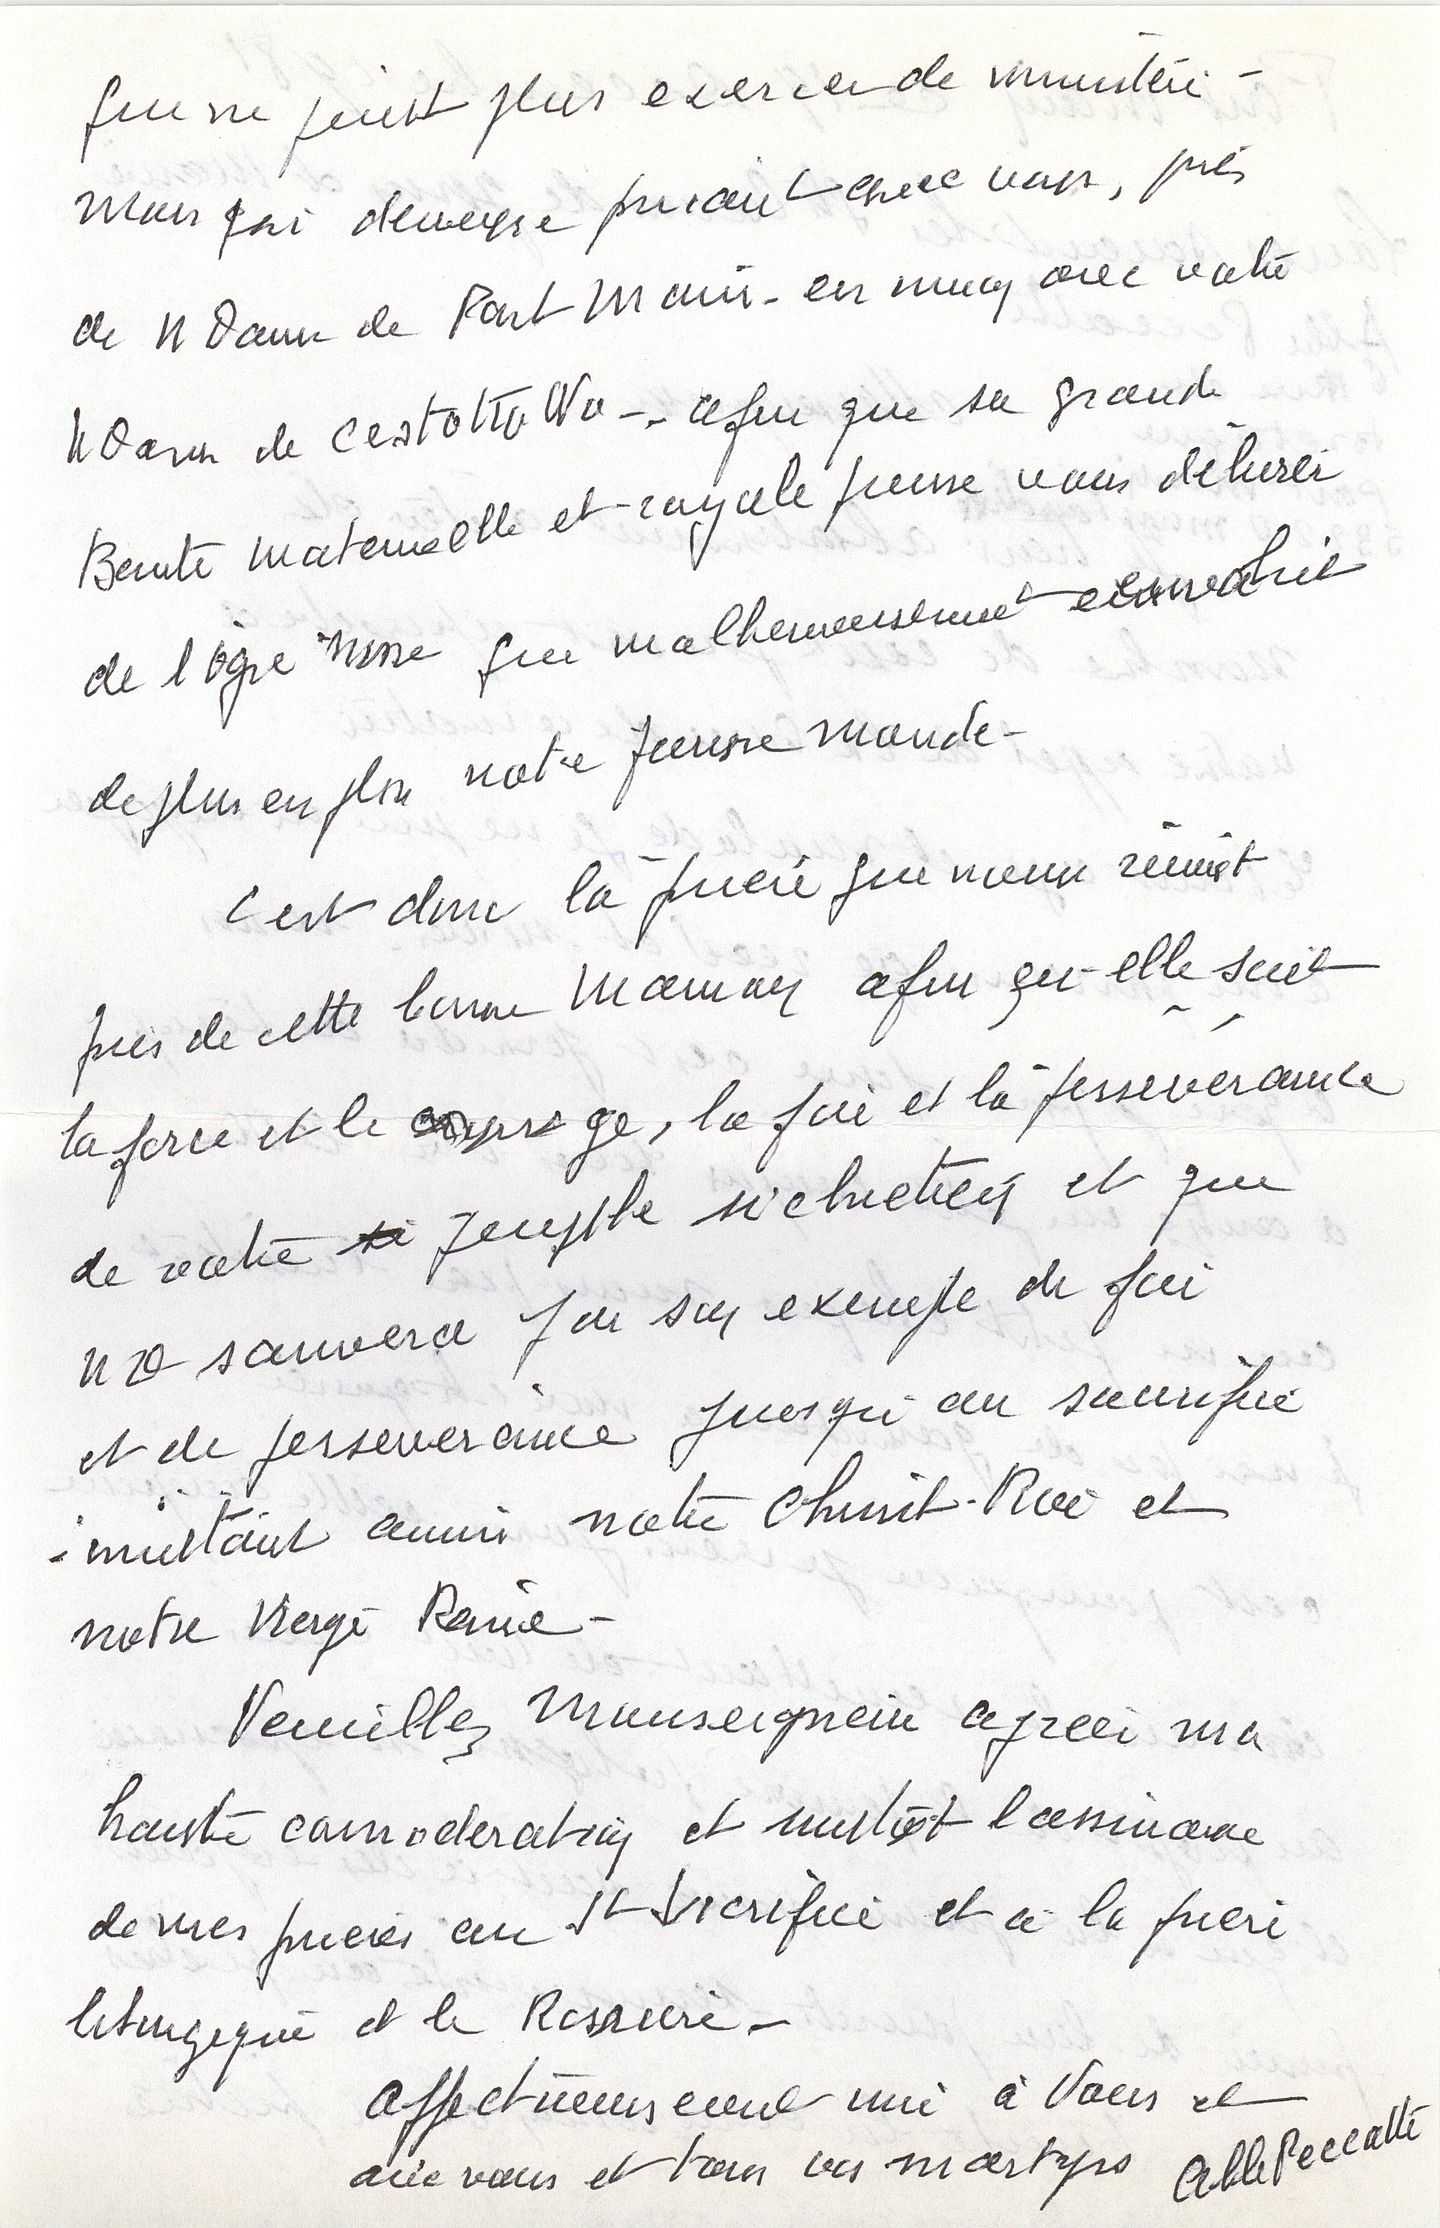 qui ne peut plus exercer de ministère -
Mais qui demeure priant avec vous, près
de N Dame de Pont Main - en union avec votre
N Dame de Cestokova - afin que sa grande
Bonté maternelle et royale puisse vous délivrer
de l'ogre russe qui malheureusement envahit
de plus en plus notre pauvre monde -
C'est donc la prière qui nous réunit
près de cette bonne Maman afin qu'elle soit
la force et le courage, la foi et la perseverance
de votre peuple si chretien et que
N D sauvera par son exemple de foi
et de perseverance jusqu'au sacrifice
imitant ainsi notre Christ-Roi et
notre Vierge Reine -
Veuillez Monseigneur agréer ma
haute consideration et surtout l'assurance
de mes prières au St Sacrifice et à la prière
liturgique et le Rosaire -
Affectueusement uni à Vous et
avec vous et tous vos martyrs Abbé Peccatte